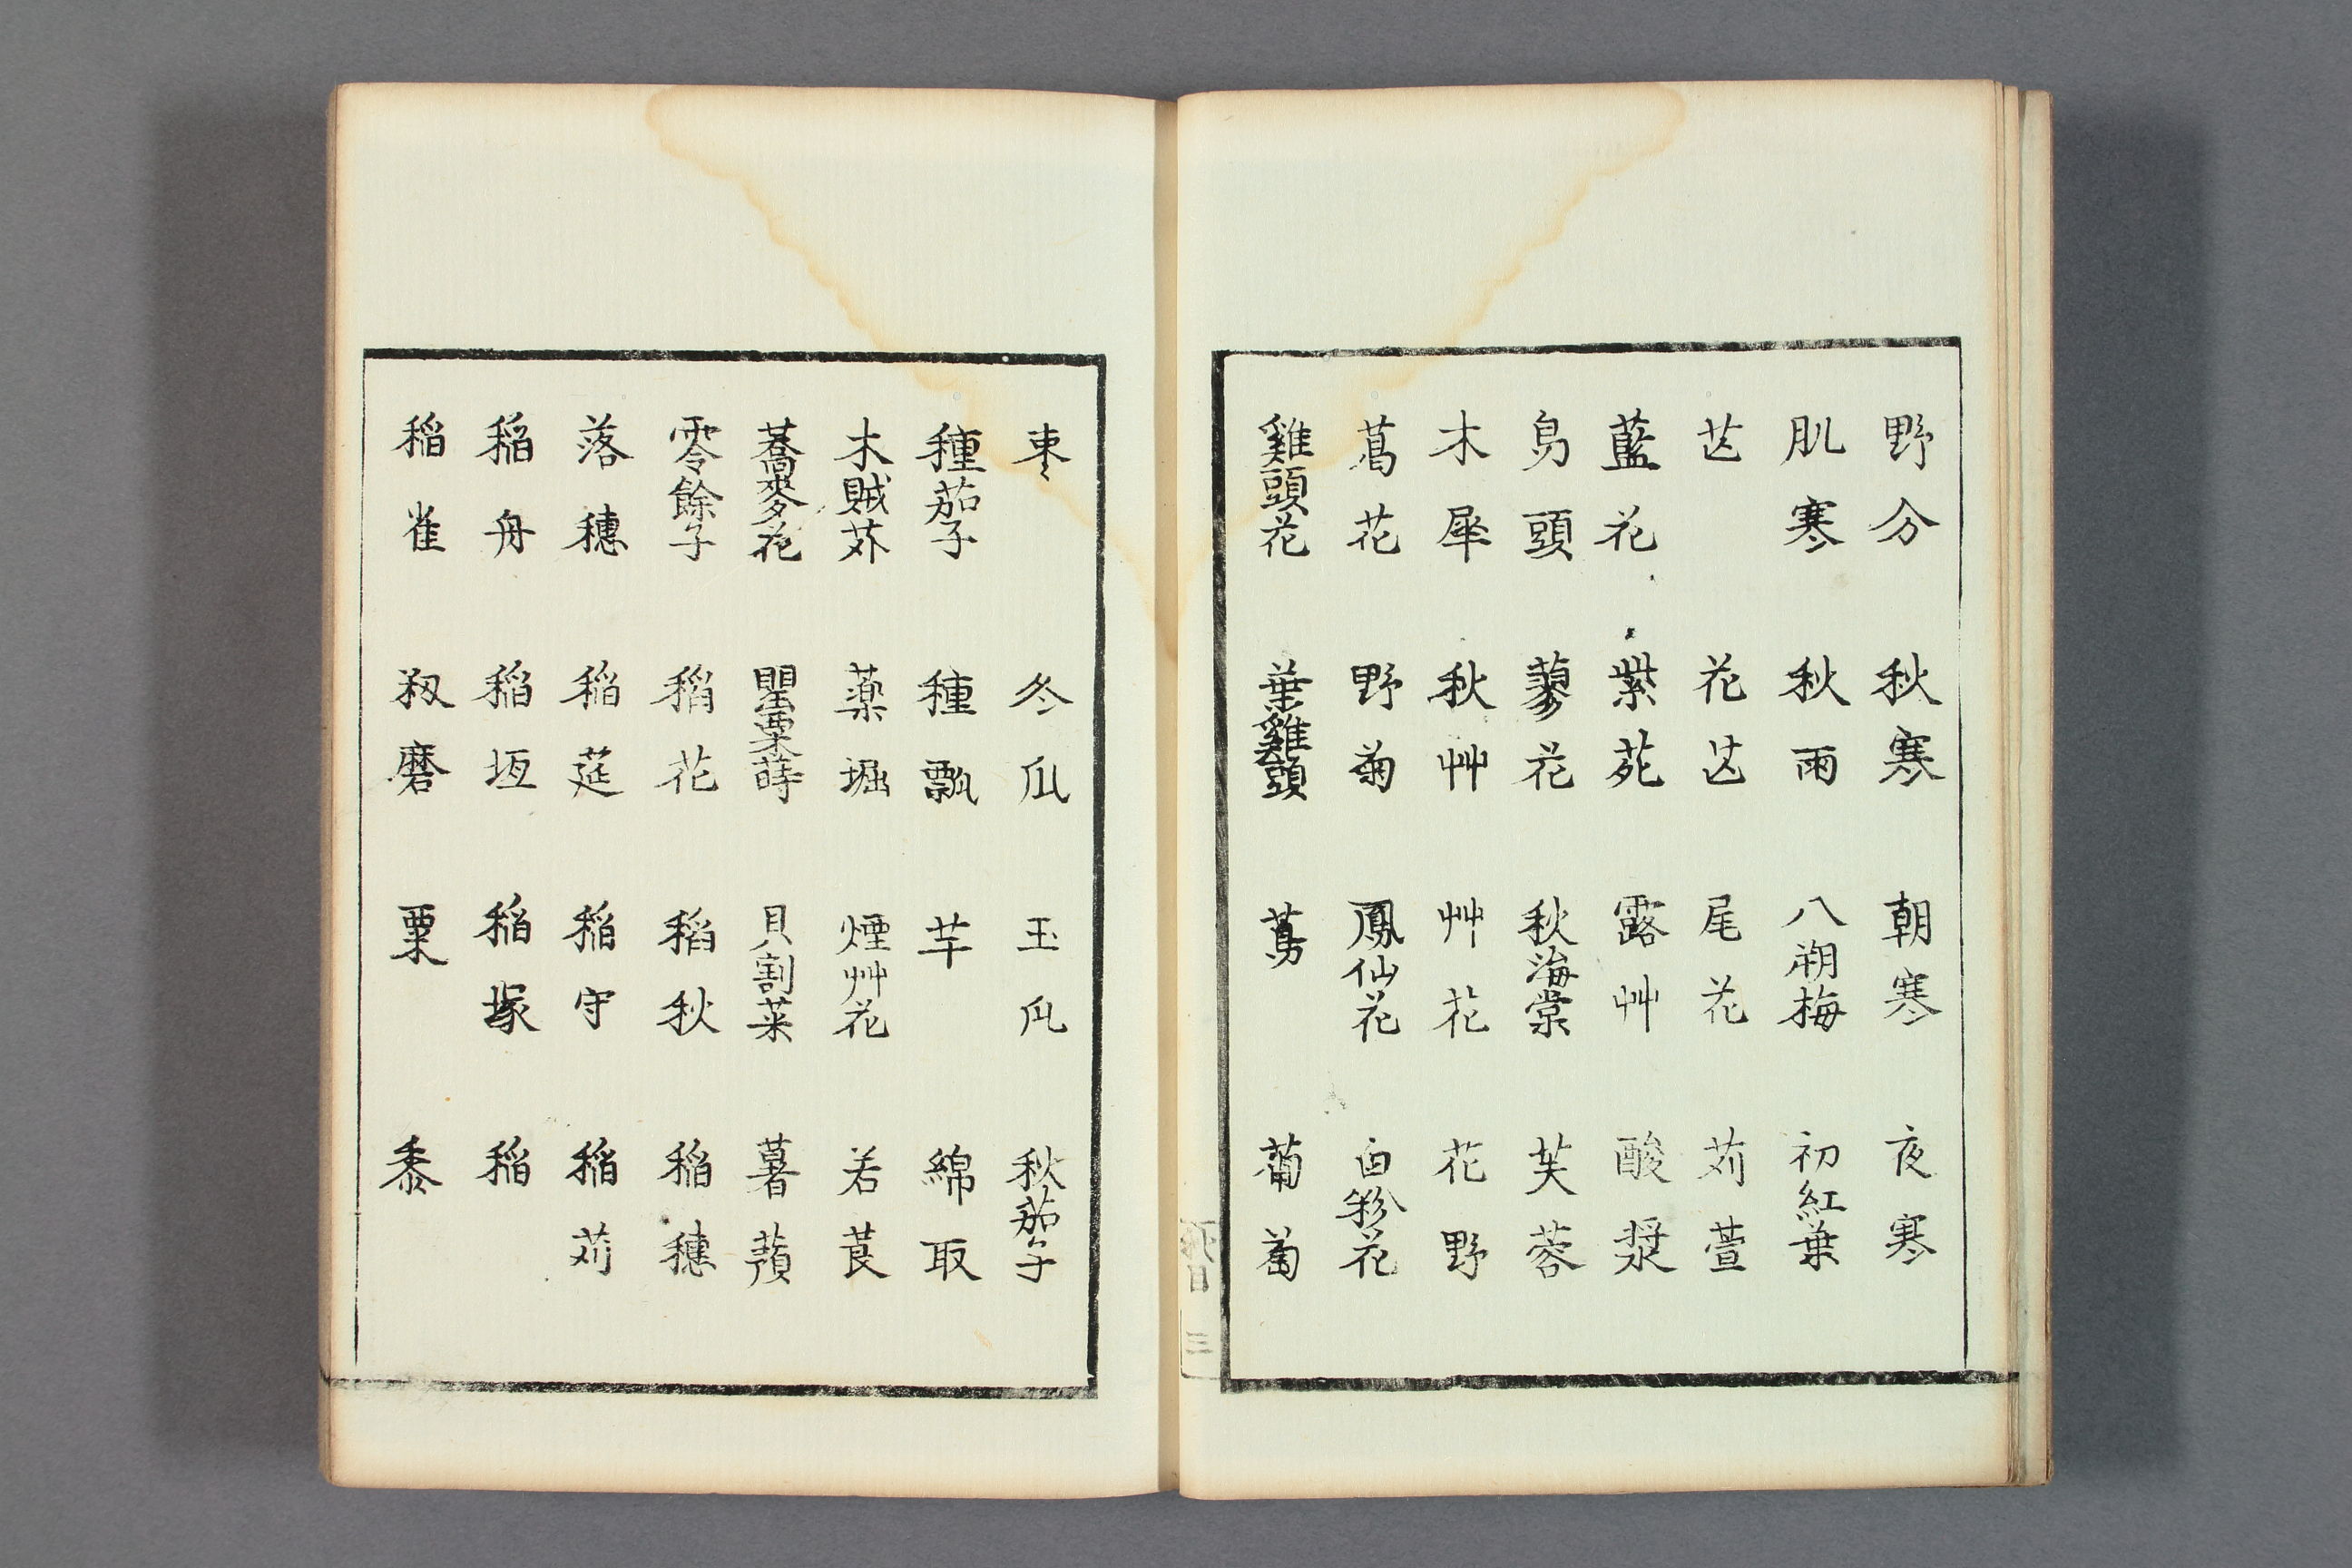 野分 秋寒 朝寒 夜寒
肌寒 秋雨 八朔梅 初紅葉
芒 花芒 尾花 苅萱
藍花 紫苑 露艸 酸漿
鳥頭 蓼花 秋海棠 芙蓉
木犀 秋艸 艸花 花野
葛花 野菊 鳳仙花 白粉花
雞頭花 葉雞頭 蔦 葡萄
棗 冬瓜 玉瓜 秋茄子
種茄子 種瓢 芋 綿取
木賊苅 薬堀 煙艸花 若莨
蕎麥花 罌粟蒔 貝割菜 薯蕷
零餘子 稻花 稻秋 稲穂
落穂 稲莚 稲守 稲苅
稲舟 稲垣 稲塚 稲
稲雀 籾磨 粟 黍
三